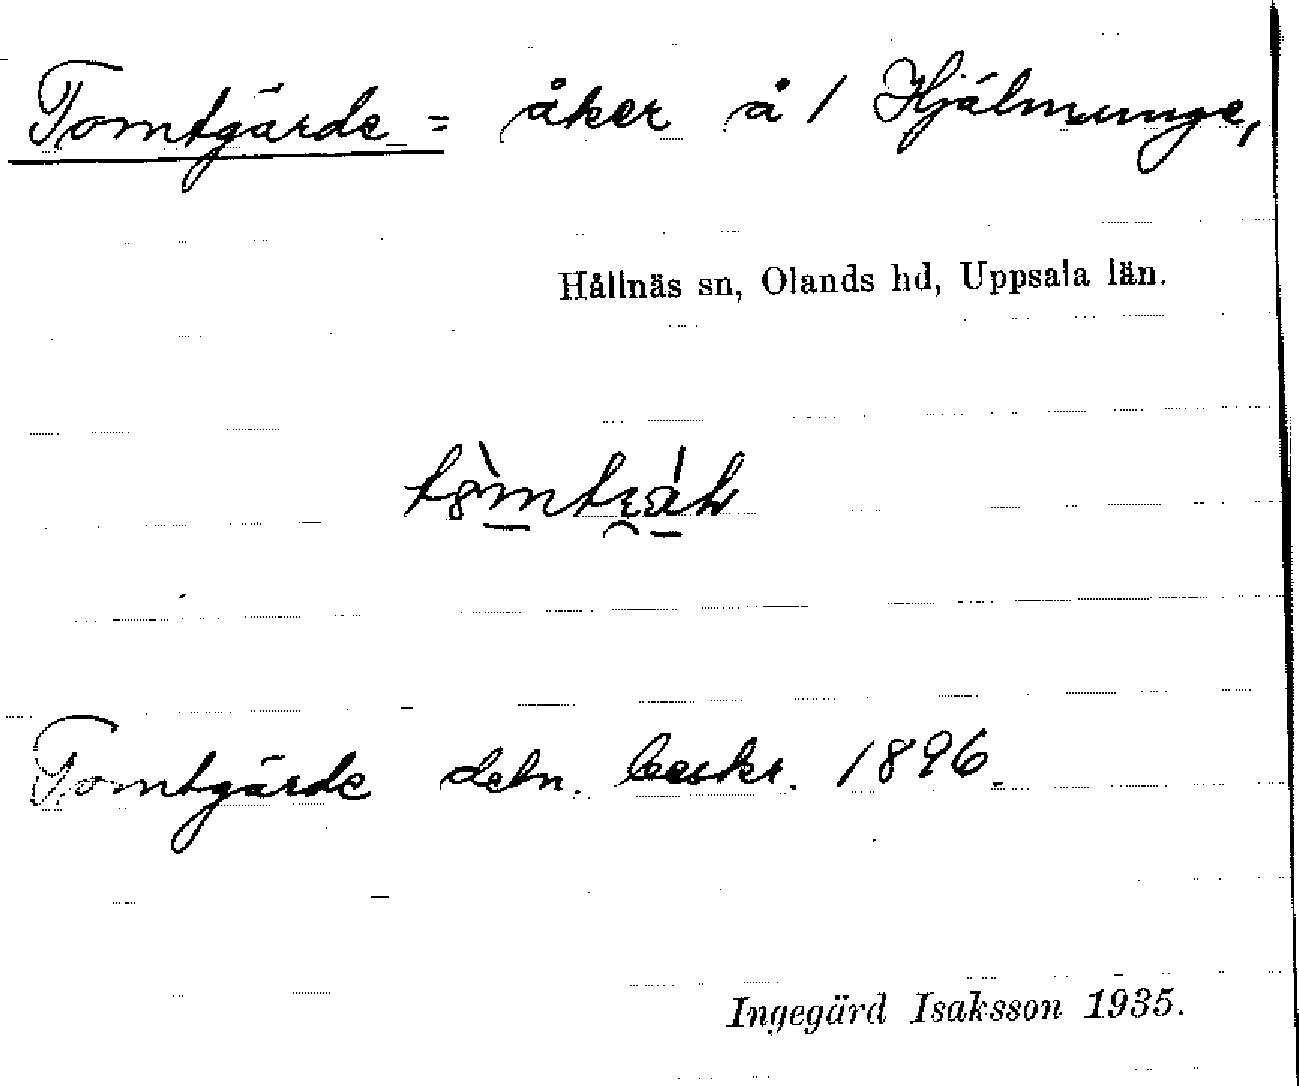 Tomtgärde = åker å 1 Hjälmunge,
Hållnäs sn, Olands hd, Uppsala län.
Tomtgärde debn. beskr. 1896.
Ingegärd Isaksson 1935.